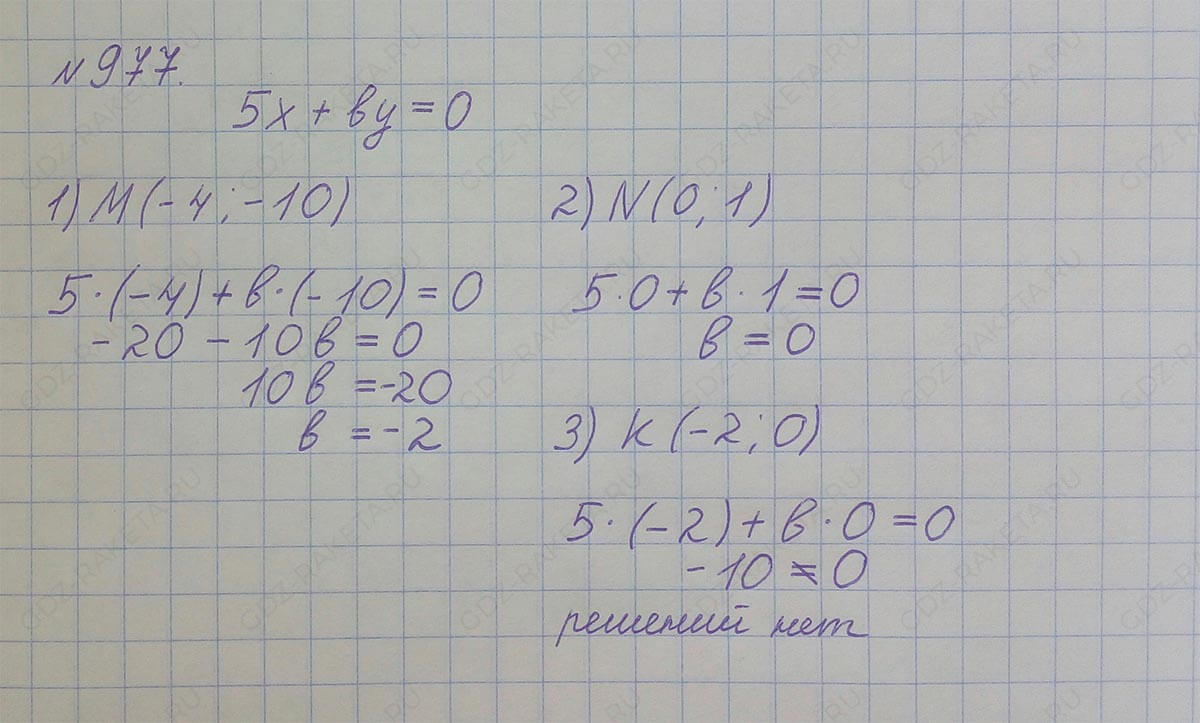 №977.
5x + by = 0
1) M (-4; -10)
5·(-4) + b·(-10) = 0
-20 - 10b = 0
10b = -20
b = -2
2) N (0; 1)
5·0 + b·1 = 0
b = 0
3) K (-2; 0)
5·(-2) + b·0 = 0
-10 ≠ 0
решений нет
GDZ-RAKETA.RU